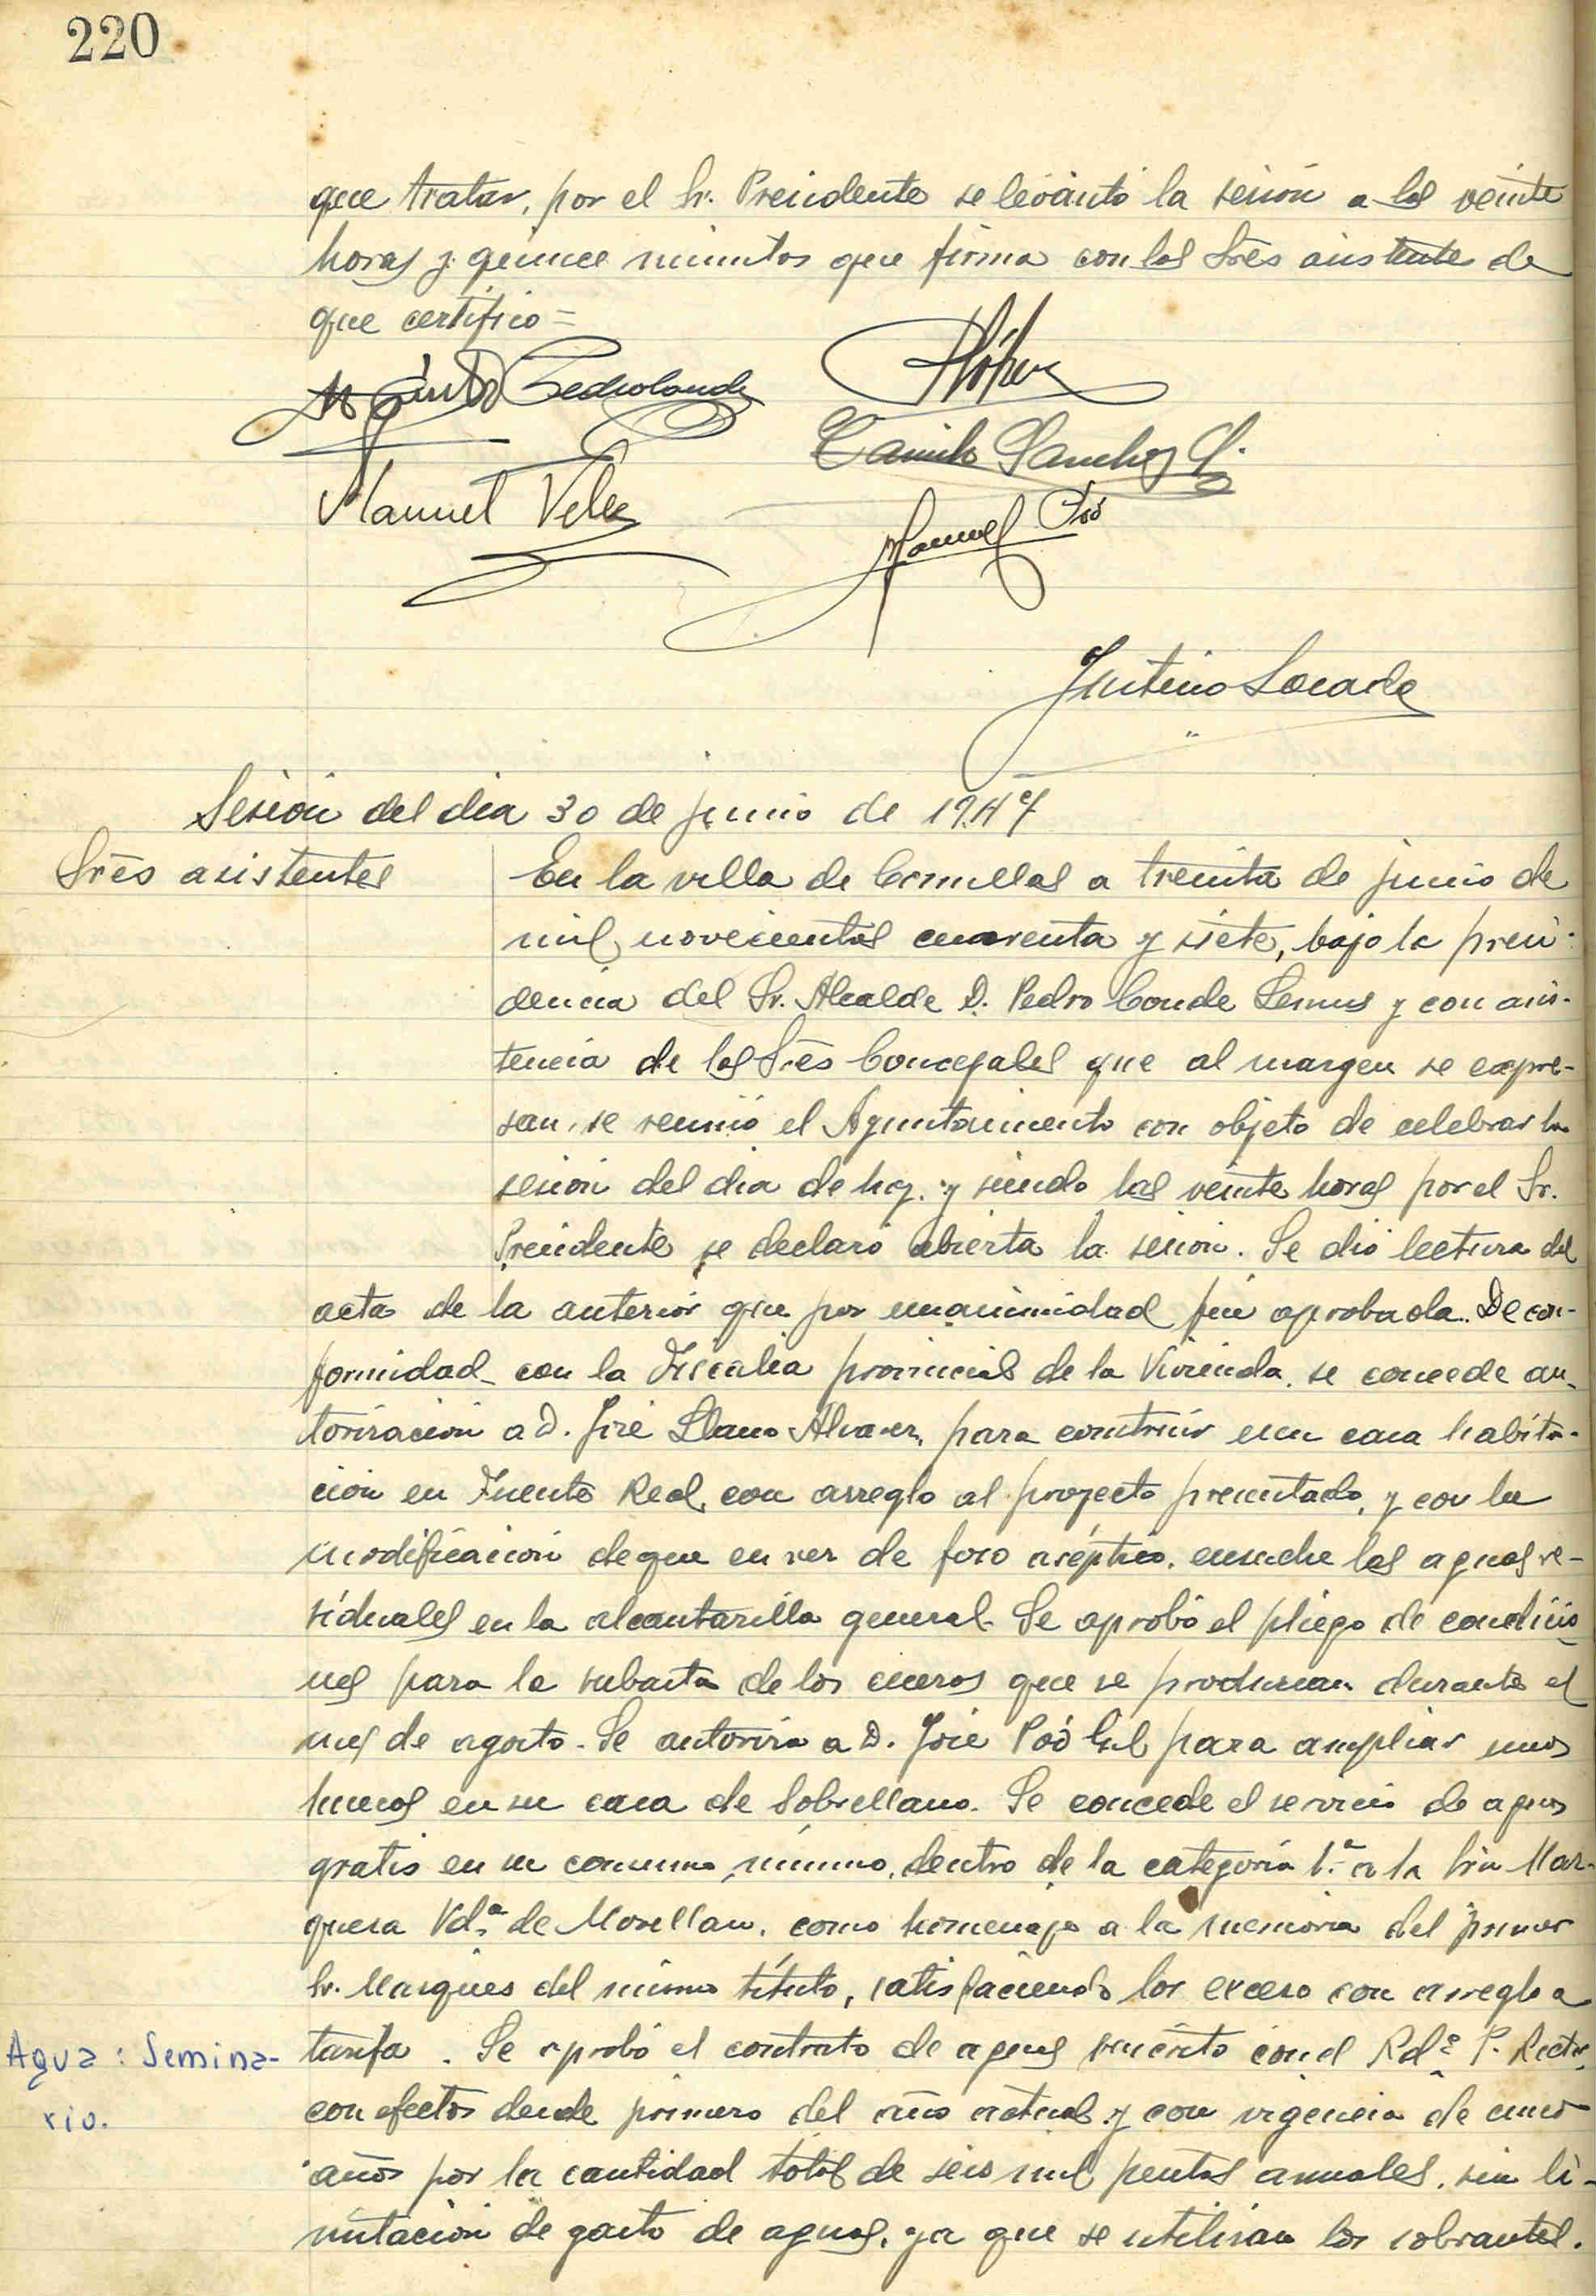 220
que tratar, por el Sr. Presidente se levantó la sesión a las veinte
horas y quince minutos que firma con los Sres asistente de
que certifico =
Manuel Velez
Camilo Sanchez
Manuel Poó
Justino Losada
Sesión del dia 30 de junio de 1947
Sres asistentes
En la villa de Comillas a treinta de junio de
mil novecientos cuarenta y siete, bajo la presi-
dencia del Sr. Alcalde D. Pedro Conde Lemus y con asis-
tencia de los Sres Concejales que al margen se expre-
san, se reunió el Ayuntamiento con objeto de celebrar la
sesión del dia de hoy. y siendo las veinte horas por el Sr.
Presidente se declaró abierta la sesion. Se dió lectura del
acta de la anterior que por unanimidad fué aprobada. De con-
formidad con la Fiscalia provincial de la Vivienda, se concede au-
torización a D. José Llano Alvarez, para construir una casa habita-
cion en Fuente Real, con arreglo al proyecto presentado, y con la
modificacion de que en vez de foso aséptico, ensuche las aguas re-
siduales en la alcantarilla general. Se aprobó el pliego de condicio
nes para la subasta de los cueros que se produzcan durante el
mes de agosto. Se autoriza a D. José Poó Gil para ampliar unos
huecos en su casa de Sobrellano. Se concede el servicio de aguas
gratis en su consumo mínimo, dentro de la categoría 1.ª a la Sra Mar-
quesa Vdª de Movellan, como homenaje a la memoria del primer
Sr. Marqués del mismo título, satisfaciendo los exceso con arreglo a
tarifa . Se aprobó el contrato de aguas suscrito con el Rdº P. Rector,
Agua: Semina-
rio.
con efectos desde primero del año actual y con vigencia de cinco
años por la cantidad total de seis mil pesetas anuales, sin li-
mitación de gasto de aguas, ya que se utilizan los sobrantes.